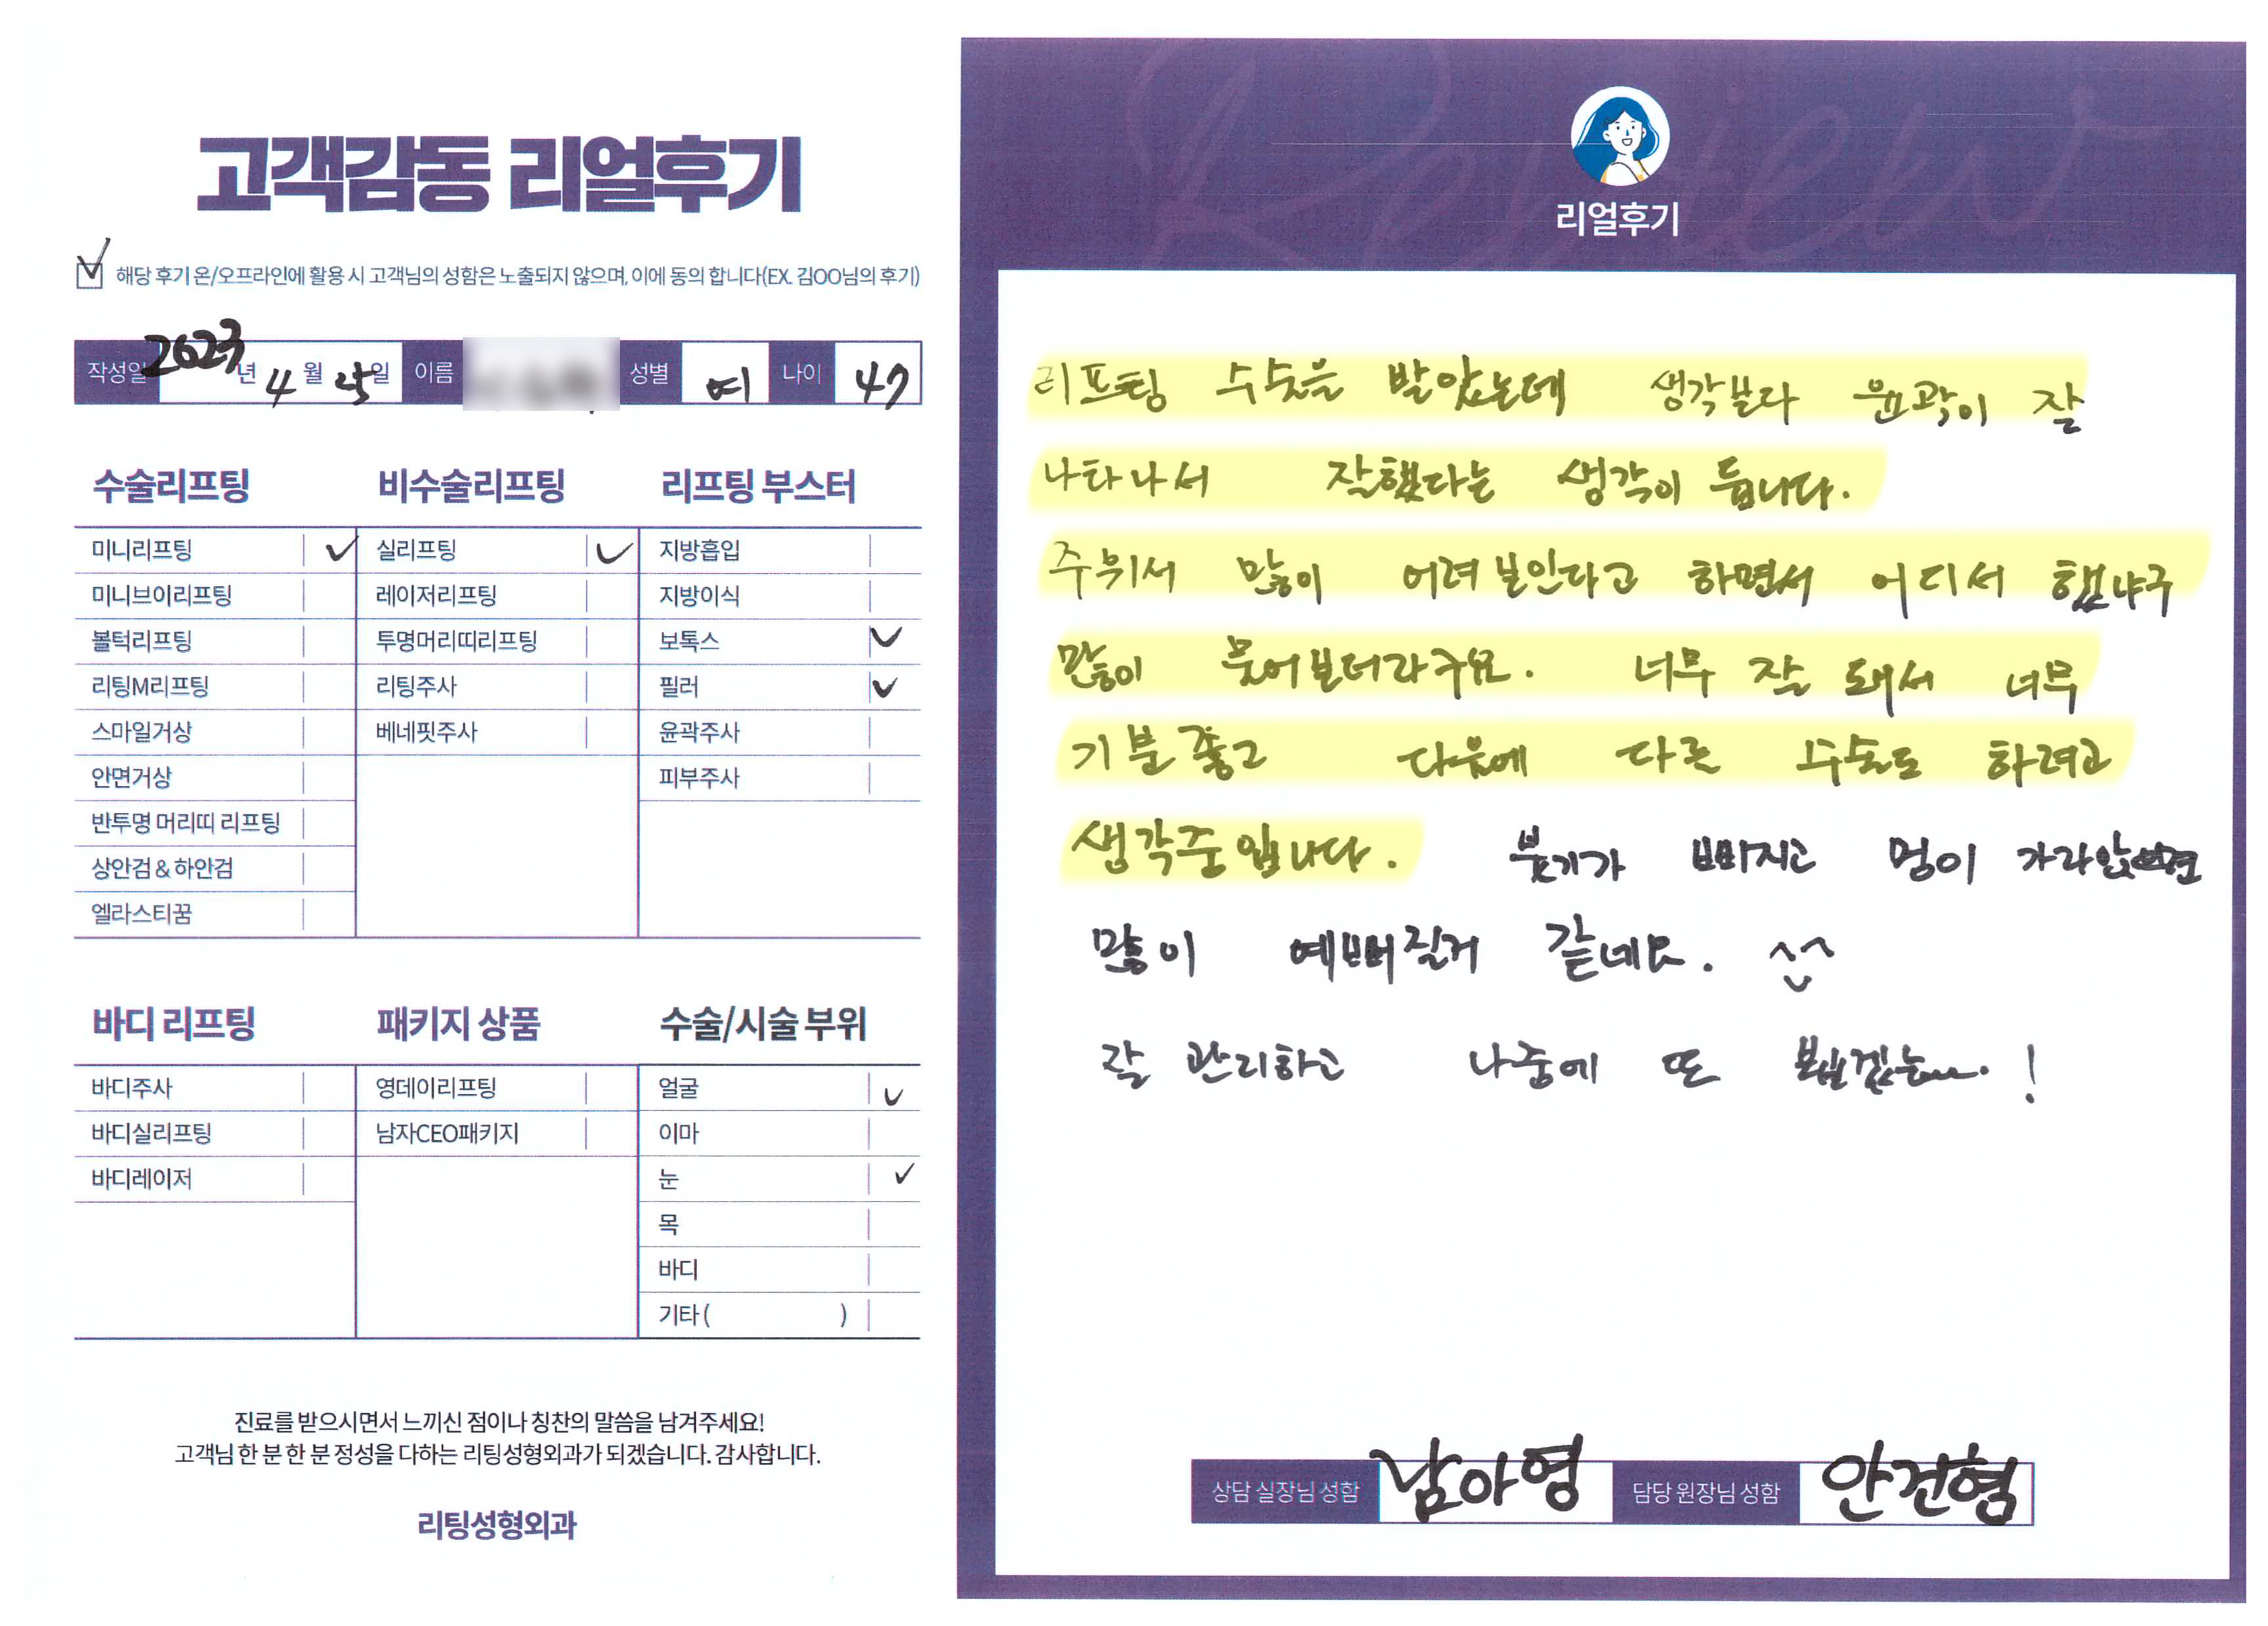 고객감동 리얼후기
✓ 해당 후기 온/오프라인에 활용 시 고객님의 성함은 노출되지 않으며, 이에 동의 합니다(EX. 김OO님의 후기)
작성일 2023년 4월 25일 이름 성별 여 나이 47
수술리프팅 비수술리프팅 리프팅 부스터
미니리프팅 ✓ 실리프팅 ✓ 지방흡입
미니브이리프팅 레이저리프팅 지방이식
볼턱리프팅 투명머리띠리프팅 보톡스 ✓
리팅M리프팅 리팅주사 필러 ✓
스마일거상 베네핏주사 윤곽주사
안면거상 피부주사
반투명 머리띠 리프팅
상안검 & 하안검
엘라스티꿈
바디 리프팅 패키지 상품 수술/시술 부위
바디주사 영데이리프팅 얼굴 ✓
바디실리프팅 남자CEO패키지 이마
바디레이저 눈 ✓
목
바디
기타 ( )
진료를 받으시면서 느끼신 점이나 칭찬의 말씀을 남겨주세요!
고객님 한 분 한 분 정성을 다하는 리팅성형외과가 되겠습니다. 감사합니다.
리팅성형외과
Review
리얼후기
리프팅 수술을 받았는데 생각보다 윤곽이 잘
나타나서 잘했다는 생각이 듭니다.
주위서 많이 어려보인다고 하면서 어디서 했냐구
많이 물어보더라구요. 너무 잘 돼서 너무
기분좋고 다음에 다른 수술도 하려고
생각중입니다. 붓기가 빠지고 멍이 가라앉으면
많이 예뻐질거 같네요. ^^
잘 관리하고 나중에 또 !
상담 실장님 성함 남아영 담당 원장님 성함 안건형